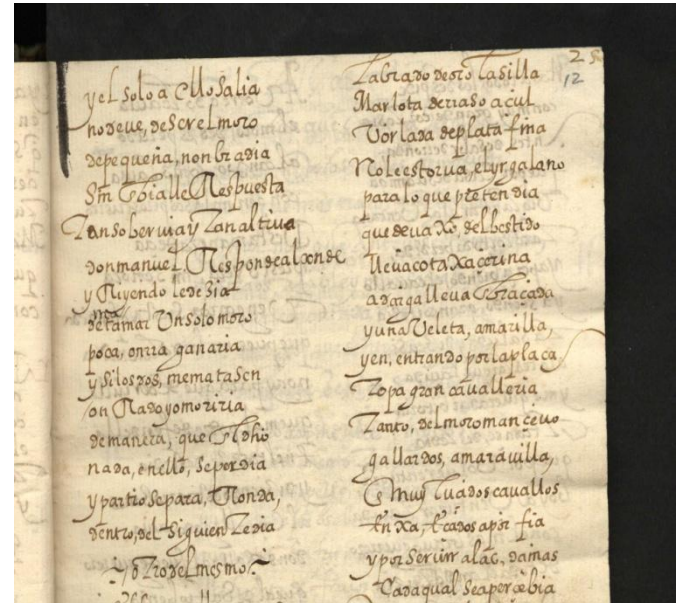 y el solo a ello salia
no deve, de ser el moro
de pequeña, nonbradia
tan soberuia y tan altiua
don manuel Responde al conde
y Riyendo le dezia
de tamar Un solo moro
poca, onrra ganaria
y si los dos, me matasen
on Rado yo moriria
de manera, que
nada, en ello, se perdia
y partio se para, Ronda,
dentro, del siguiente dia
otro del mesmo
25
12
labrado de oro la silla
Marlota de rraso açul
Vorlada de plata fina
No le estorua, el yr galano
para lo que pretendia
que devaxo, del bestido
lleua cota Xacerina
adarga lleua
y una Veleta, amarilla,
y en, entrando por la plaça
topa gran caualleria
tanto, del moro mancevo
gallardos, a marauilla,
muy cauallos
y por seruir a las, damas
Cada qual se aperçebia